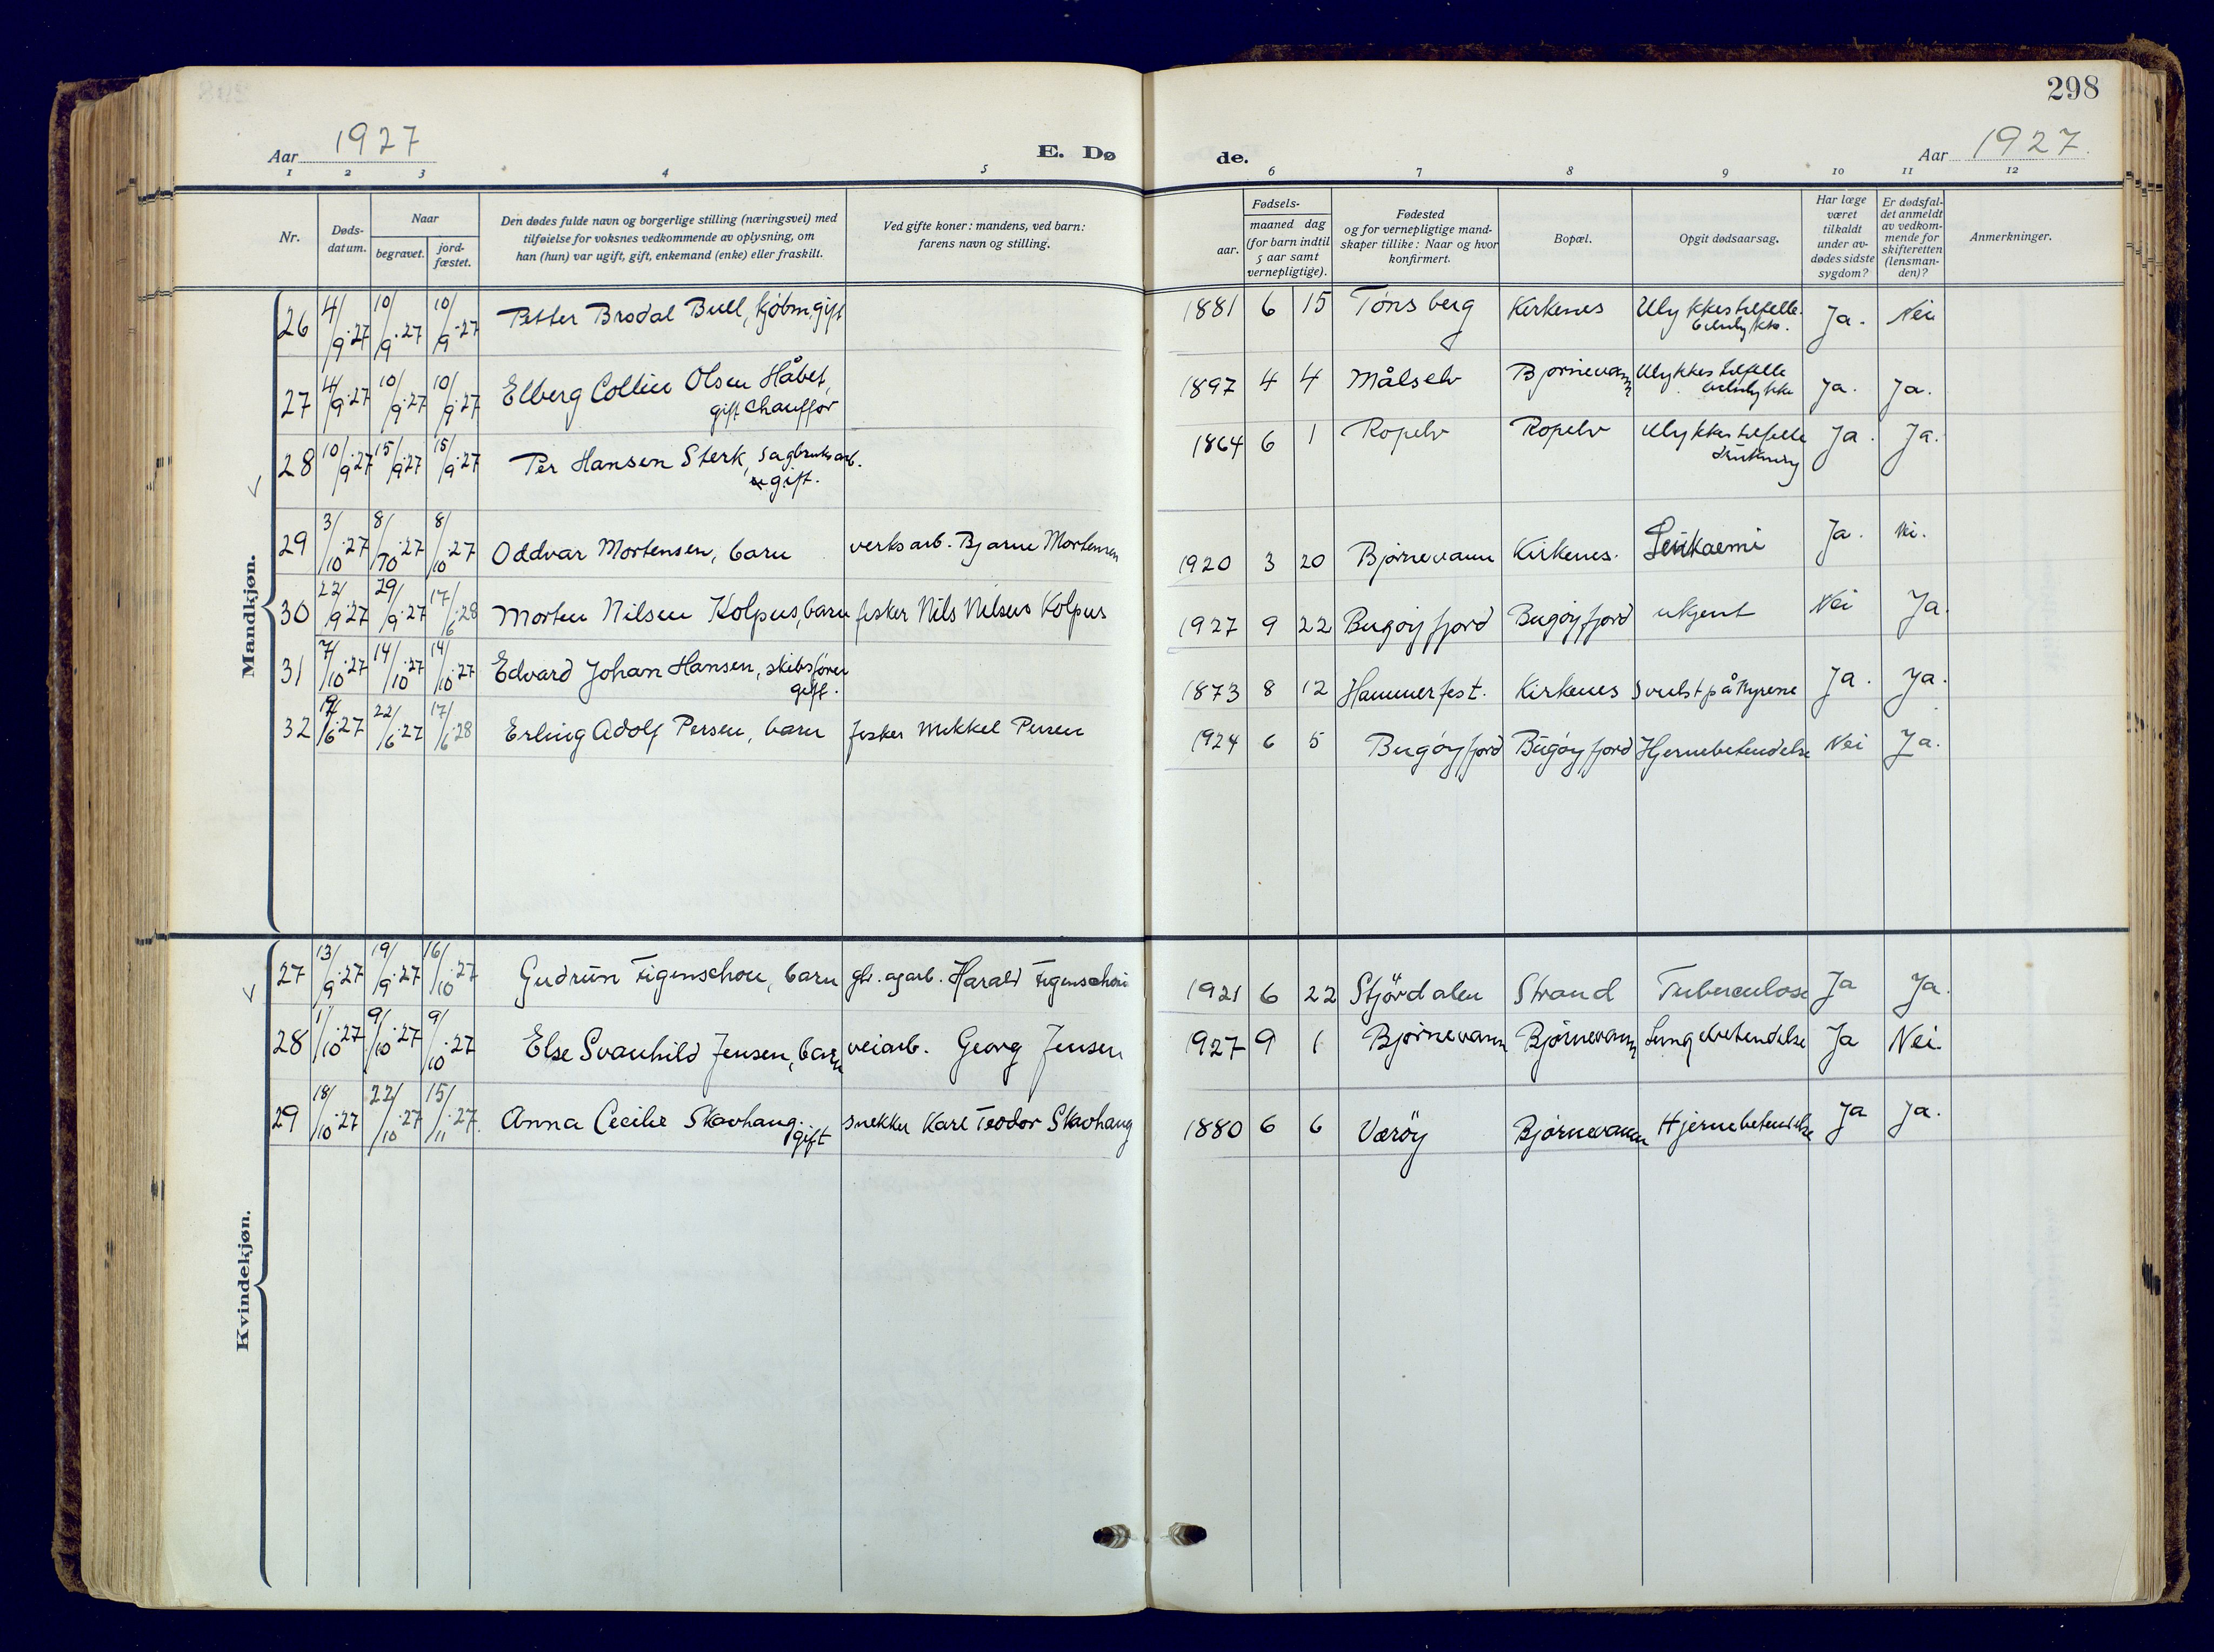 298
Aar 1927 E. Dø de. Aar 1927.
1 2 3 4 5 6 7 8 9 10 11 12
Nr. Døds-datum. Naar begravet. jord-fæstet. Den dødes fulde navn og borgerlige stilling (næringsvei) med tilføielse for voksnes vedkommende av oplysning, om han (hun) var ugift, gift, enkemand (enke) eller fraskilt. Ved gifte koner: mandens, ved barn: farens navn og stilling. Fødsels- aar. maaned dag (for barn indtil 5 aar samt vernepligtige). Fødested og for vernepligtige mand-skaper tillike: Naar og hvor konfirmert. Bopæl. Opgit dødsaarsag. Har læge været tilkaldt under av-dødes sidste sygdom? Er dødsfal-det anmeldt av vedkom-mende for skifteretten (lensman-den)? Anmerkninger.
Mandkjøn.
26 4/9.27 10/9.27 10/9.27 Petter Brodal Bull, kjöbm, gift 1881 6 15 Tönsberg Kirkenes Ulykkestilfelle. Bilulykke. Ja. Nei
27 4/9.27 10/9.27 10/9.27 Elberg Collin Olsen Håbet, gift Chauffør 1897 4 4 Målselv Bjørnevann Ulykkestilfelle Bilulykke Ja. Ja.
28 10/9.27 15/9.27 15/9.27 Per Hansen Sterk, sagbruksarb. gift. 1864 6 1 Ropelv Ropelv Ulykkestilfelle Drukning Ja. Ja.
29 3/10.27 8/10.27 8/10.27 Oddvar Mortensen, barn verksarb. Bjarne Mortensen 1920 3 20 Bjørnevann Kirkenes. Leukaemi Ja. Nei.
30 22/9.27 29/9.27 17/6.28 Morten Nilsen Kolpus, barn fisker Nils Nilsens Kolpus 1927 9 22 Bugöyfjord Bugöyfjord ukjent Nei Ja.
31 7/10.27 14/10.27 14/10.27 Edvard Johan Hansen, skibsförer gift. 1873 8 12 Hammerfest. Kirkenes Svulst på Nyrene Ja. Ja.
32 /6.27 22/6.27 17/6.28 Erling Adolf Persen, barn fisker Mikkel Persen 1924 6 5 Bugöyfjord Bugöyfjord Hjernebetendelse Nei Ja.
Kvindekjøn.
27 13/9.27 19/9.27 16/10.27 Gudrun Figenschou, barn Harald Figenschou 1921 6 22 Stjördalen Strand Tuberculose Ja Ja.
28 1/10.27 9/10.27 9/10.27 Else Svanhild Jensen, barn veiarb. Georg Jensen 1927 9 1 Bjørnevann Bjørnevann Lungebetendelse Ja Nei.
29 18/10.27 22/10.27 15/11.27. Anna Cecilie Skavhaug. gift snekker Karl Teodor Skavhaug 1880 6 6 Værøy Bjørnevann Hjernebetendelse Ja Ja.